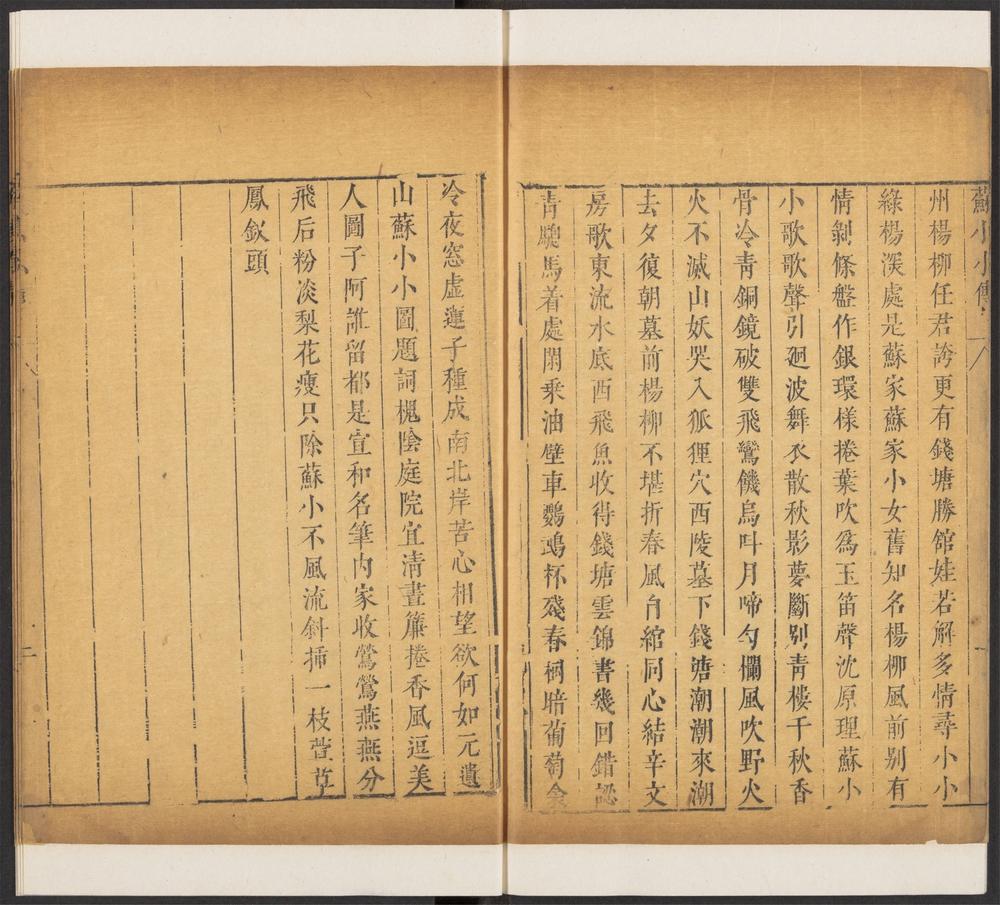 蘇小小傳
州楊柳任君誇更有錢塘勝館娃若解多情尋小小
綠楊深處是蘇家蘇家小女舊知名楊柳風前別有
情剝條盤作銀環樣捲葉吹爲玉笛聲沈原理蘇小
小歌歌聲引廻波舞衣散秋影夢斷別靑樓千秋香
骨冷靑銅鏡破雙飛鸞饑烏叫月啼勾欄風吹野火
火不滅山妖哭入狐狸穴西陵墓下錢塘潮潮來潮
去夕復朝墓前楊柳不堪折春風自綰同心結辛文
房歌東流水底西飛魚收得錢塘雲錦書幾回錯認
靑驄馬着處閑乘油壁車鸚鵡杯殘春樹暗葡萄衾
冷夜窓虛蓮子種成南北岸苦心相望欲何如元遺
山蘇小小圖題詞槐陰庭院宜淸晝簾捲香風逗美
人圖子阿誰留都是宣和名筆內家收鶯鶯燕燕分
飛后粉淡梨花瘦只除蘇小不風流斜揷一枝萱草
鳳釵頭